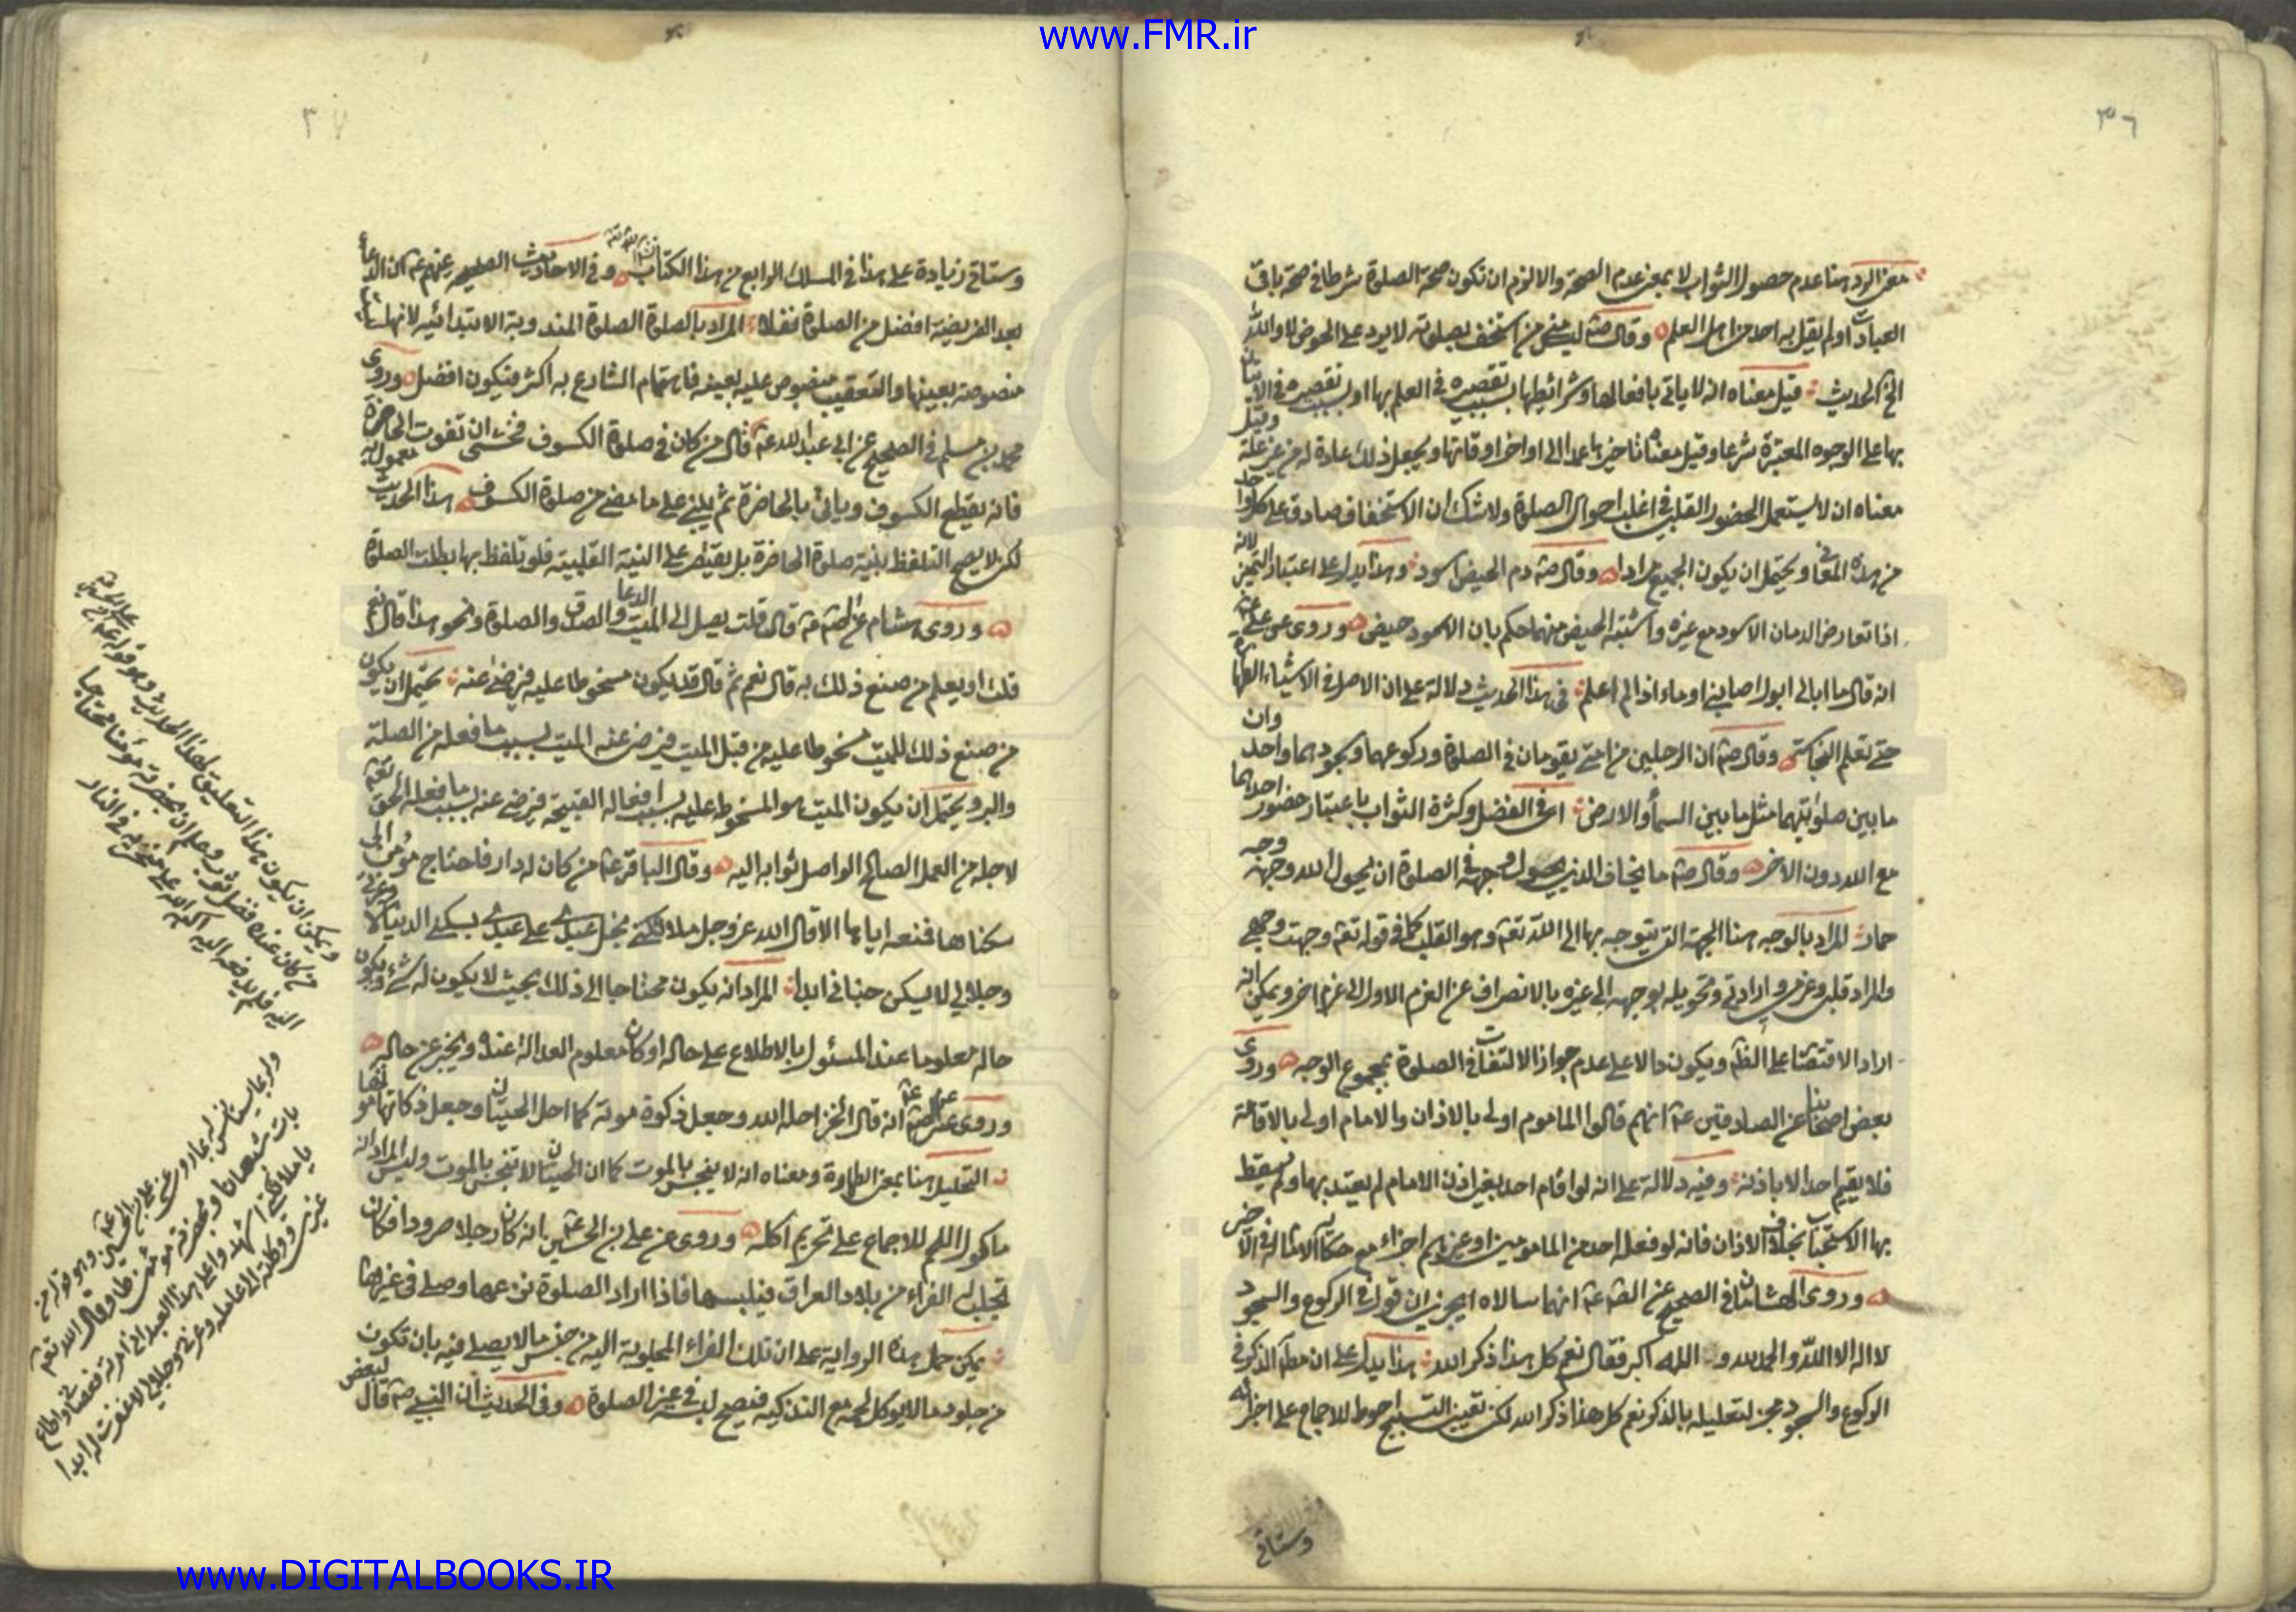 www.FMR.ir
٣٦
معنى الرد هنا عدم حصول الثواب لا بمعنى عدم الصحة والا لزم ان تكون صحة الصلوة شرطا في صحة باقي
العبادات ولم يقل به احد من اهل العلم وقال صه ليس مني من استخف بصلوته لا يرد على الحوض لا والله
الخ الحديث قيل معناه انه لا ياتي بافعالها وشرائطها بسبب تقصيره في العلم بها او بسبب تقصيره في الاتيان
بها على الوجوه المعتبرة شرعا وقيل معناه تاخيرها عمدا الى اواخر اوقاتها ويجعل ذلك عادة له من غير علة وقيل
معناه ان لا يستعمل الحضور القلبي في اغلب احوال الصلوة ولا شك ان الاستخفاف صادق على كل واحد
من هذه المعاني ويحتمل ان يكون الجميع مرادا وقال صه دم الحيض اسود وهذا يدل على اعتبار التميز لانه
اذا تعارض الدمان الاسود مع غيره واشتبه الحيض منهما حكم بان الاسود حيض وروى عن علي عه
انه قال ما ابالي ابول اصابني او ماء اذا لم اعلم في هذا الحديث دلالة على ان الاصل في الاشياء الطهارة
حتى تعلم النجاسة وقال صه ان الرجلين من امتي يقومان في الصلوة وركوعهما وسجودهما واحد وان
ما بين صلوتيهما مثل ما بين السماء والارض اى في الفضل وكثرة الثواب باعتبار حضور احدهما
مع الله دون الاخر وقال صه ما يخاف الذي يحول وجهه في الصلوة ان يحول الله وجهه وجه
حمار المراد بالوجه هنا الجهة التي يتوجه بها الى الله تعه وهو القلب كما في قوله تعه وجهت وجهي
والمراد قلبي وعزمي وارادتي وتحويله بوجهه الى غيره بالانصراف عن العزم الاول الى عزم اخر ويمكن انه
اراد الاقتضا على الظهر ويكون دالا على عدم جواز الالتفات في الصلوة بمجموع الوجه وروى
بعض اصحابنا عن الصادقين عه انهم قالوا الماموم اولى بالاذان والامام اولى بالاقامة
فلا يقيم احد الا باذنه وفيه دلالة على انه لو اقام احد بغير اذن الامام لم يعتد بها ولم يسقط
بها الاستحباب بخلاف الاذان فانه لو فعله احد من المامومين او غيرهم اجزاء مع حكاية
وروى الهشامان في الصحيح عن الصه عه انهما سالاه ايجزي ان قول في الركوع والسجود
لا اله الا الله والحمد لله و الله اكبر فقال نعم كل هذا ذكر الله هذا يدل على ان مطلق الذكر في
الركوع والسجود مجز لتعليله بالذكر نعم كل هذا ذكر الله لكن تعين التسبيح احوط للاجماع على اجزائه
وستاتي
٣٧
وستاتي زيادة على هذا في المسلك الرابع من هذا الكتاب وفي الاحاديث الصحيحة عنهم عه ان الدعاء
بعد الفريضة افضل من الصلوة نفلا المراد بالصلوة الصلوة المندوبة الابتدائية لانها ليست
منصوصة بعينها والتعقيب منصوص عليه بعينه فاهتمام الشارع به اكثر فيكون افضل وروى
محمد بن مسلم في الصحيح عن ابي عبد الله عه قال من كان في صلوة الكسوف فخشى ان تفوت الحاضرة
فانه يقطع الكسوف وياتي بالحاضرة ثم يبني على ما مضى من صلوة الكسوف هذا الحديث معمول به
لكن لا يصح التلفظ بنية صلوة الحاضرة بل يقتصر على النية القلبية فلو تلفظ بها بطلت الصلوة
وروى هشام عن الصه عه قال قلت يصل الى الميت الدعا والصدقة والصلوة ونحو هذا قال نعم
قلت او يعلم من صنع ذلك به قال نعم ثم قال قد يكون مسخوطا عليه فيرضى عنه يحتمل ان يكون
من صنع ذلك للميت مسخوطا عليه من قبل الميت فيرضى عنه الميت بسبب ما فعله من الصلة
والبر ويحتمل ان يكون الميت هو المسخوط عليه بسبب افعاله القبيحة فيرضى عنه بسبب ما فعله الحق تعه
لاجله من العمل الصالح الواصل ثوابه اليه وقال الباقر عه من كان له دار فاحتاج مؤمن الى
سكناها فمنعه اياها الا قال الله عز وجل ملائكتي بخل عبدي على عبدي بسكنى الدنيا لا وعزتي
وجلالي لا يسكن جناني ابدا المراد انه يكون محتاجا الى ذلك بحيث لا يكون له شيء ويكون
حاله معلوما عند المسئول بالاطلاع على حاله او كان معلوم العدالة عنده ويخبر عن حاله
وروى عن الصه عه انه قال الخز احله الله وجعل ذكوة موته كما احل الحيتان وجعل ذكاتها موتها
التحليل هنا بمعنى الطهارة ومعناه انه لا ينجس بالموت كما ان الحيتان لا تنجس بالموت وليس المراد انه
ماكول اللحم للاجماع على تحريم اكله وروى عن علي بن الحسين عه انه كان رجلا صرودا فكان
تجلب له الفراء من بلاد العراق فيلبسها فاذا اراد الصلوة نزعها وصلى في غيرها
يمكن حمل هذه الرواية على ان تلك الفراء المجلوبة اليه من جنس ما لا يصلى فيه بان تكون
من جلود ما لا يوكل لحمه مع التذكية فيصح لبسه في غير الصلوة وفي الحديث ان النبي صه قال لبعض
ويمكن ان يكون هذا التعليق لهذا الحديث وهو قوله
من كان عنده فضل ثوب وعلم ان بحضرته مؤمنا محتاجا
اليه فلم يدفعه اليه اكبه الله على منخريه في النار
علي بن الحسين عه وهو قوله من
بات شبعانا وبحضرته مؤمن طاو قال الله تعه
يا ملائكتي اشهدوا على هذا العبد اني امرته فعصاني واطاع
غيري ووكلته الى عمله وعزتي وجلالي لا غفرت له ابدا
www.DIGITALBOOKS.IR